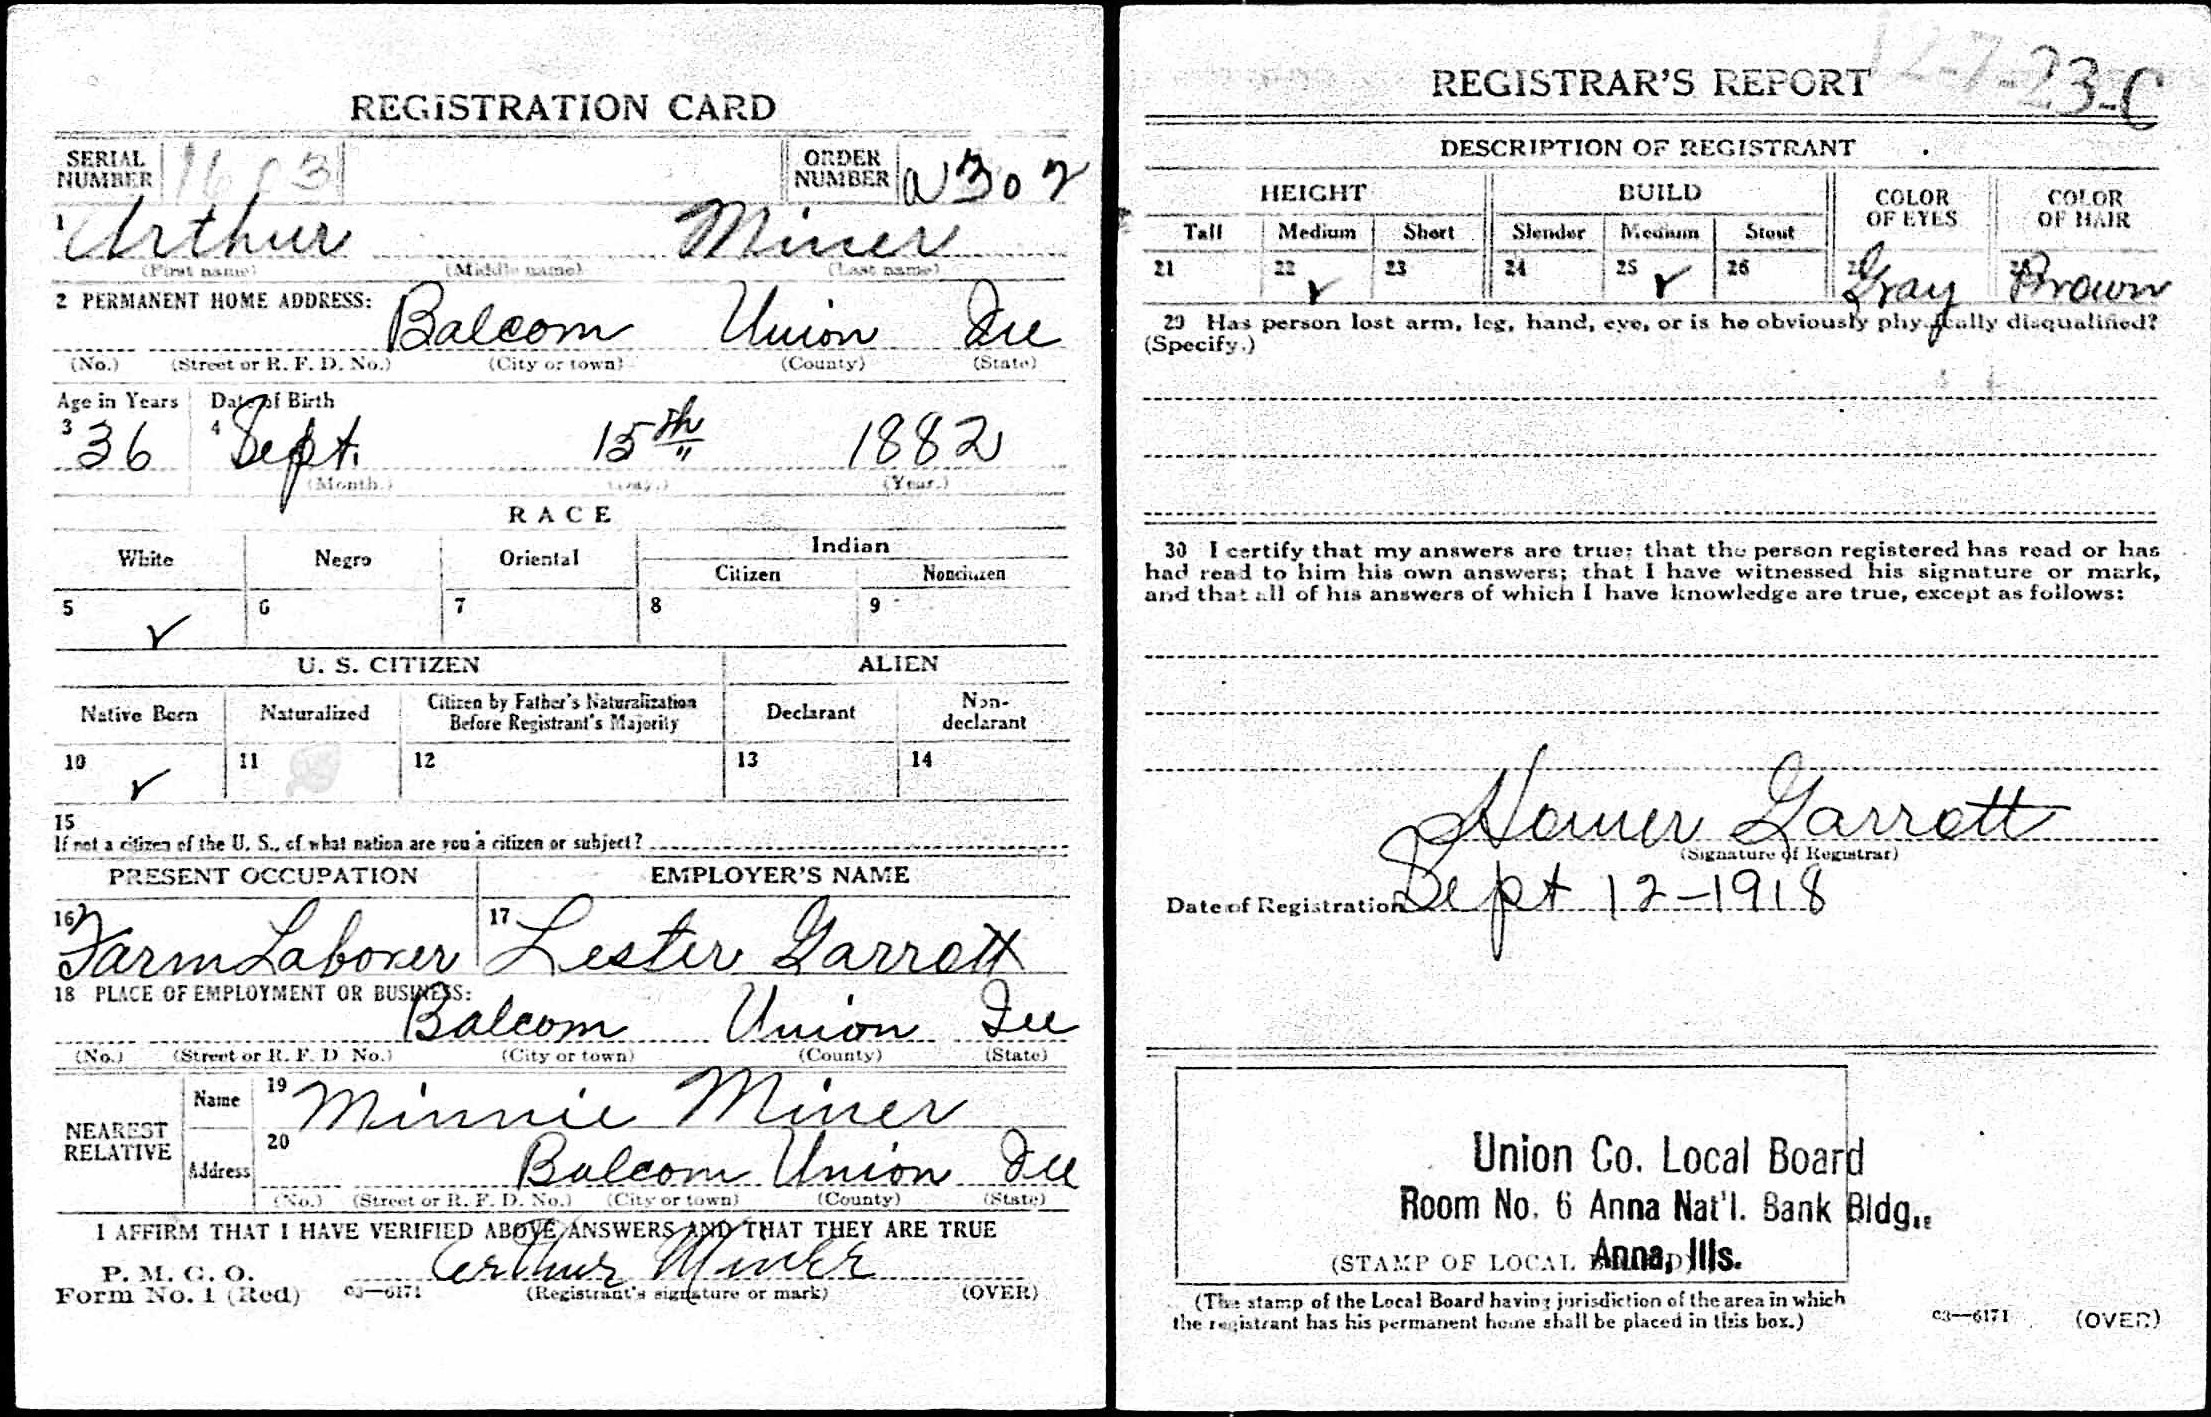 REGISTRATION CARD
SERIAL NUMBER
ORDER NUMBER
1 Arthur Miner
(First name) (Middle name) (Last name)
2 PERMANENT HOME ADDRESS:
Balcom Union Ill
(No.) (Street or R. F. D. No.) (City or town) (County) (State)
Age in Years Date of Birth
3 36 4 Sept. 15th 1882
(Month.) (Day.) (Year.)
RACE
White Negro Oriental Indian
Citizen Noncitizen
5 ✓ 6 7 8 9
U. S. CITIZEN ALIEN
Native Born Naturalized Citizen by Father's Naturalization Before Registrant's Majority Declarant Non-declarant
10 ✓ 11 12 13 14
15
If not a citizen of the U. S., of what nation are you a citizen or subject?
PRESENT OCCUPATION EMPLOYER'S NAME
16 Farm Laborer 17 Lester Garrott
18 PLACE OF EMPLOYMENT OR BUSINESS:
Balcom Union Ill
(No.) (Street or R. F. D. No.) (City or town) (County) (State)
NEAREST RELATIVE
Name 19 Minnie Miner
Address 20 Balcom Union Ill
(No.) (Street or R. F. D. No.) (City or town) (County) (State)
I AFFIRM THAT I HAVE VERIFIED ABOVE ANSWERS AND THAT THEY ARE TRUE
P. M. G. O.
Form No. 1 (Red) 03—6171
Arthur Miner
(Registrant's signature or mark) (OVER)
REGISTRAR'S REPORT
12-7-23-C
DESCRIPTION OF REGISTRANT
HEIGHT BUILD COLOR OF EYES COLOR OF HAIR
Tall Medium Short Slender Medium Stout
21 22 ✓ 23 24 25 ✓ 26 27 Gray 28 Brown
29 Has person lost arm, leg, hand, eye, or is he obviously physically disqualified?
(Specify.)
30 I certify that my answers are true; that the person registered has read or has
had read to him his own answers; that I have witnessed his signature or mark,
and that all of his answers of which I have knowledge are true, except as follows:
Homer Garrott
(Signature of Registrar)
Date of Registration Sept 12-1918
Union Co. Local Board
Room No. 6 Anna Nat'l. Bank Bldg..
Anna, Ills.
(STAMP OF LOCAL BOARD)
(The stamp of the Local Board having jurisdiction of the area in which
the registrant has his permanent home shall be placed in this box.)
03—6171 (OVER)